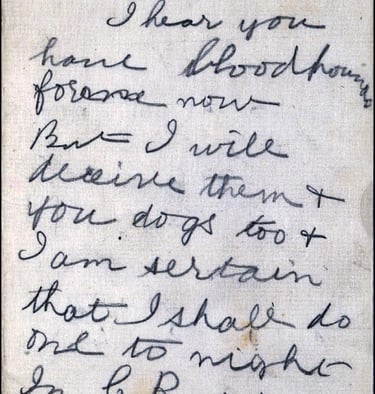 I hear you
have bloodhounds
for me now
But I will
deceive them +
you dogs too +
I am sertain
that I shall do
one to night
In